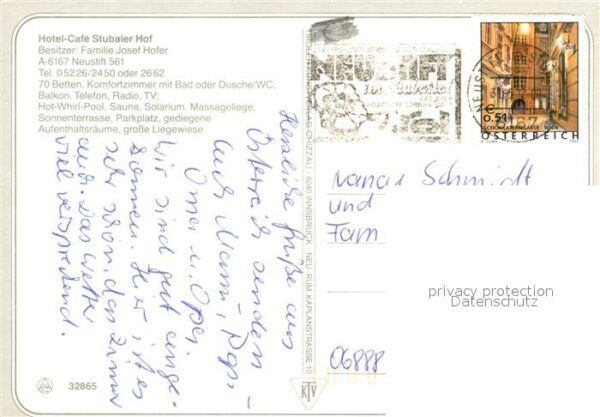 Hotel-Café Stubaier Hof
Besitzer: Familie Josef Hofer
A-6167 Neustift 561
Tel. 05226/2450 oder 2662
70 Betten, Komfortzimmer mit Bad oder Dusche/WC,
Balkon, Telefon, Radio, TV;
Hot-Whirl-Pool, Sauna, Solarium, Massageliege,
Sonnenterrasse, Parkplatz, gediegene
Aufenthaltsräume, große Liegewiese.
Herzliche Grüße aus
Österreich senden
Euch Mami, Papi,
Oma u. Opa.
Wir sind gut ange-
kommen. Hier ist es
sehr schön, das Zimmer
auch. Das Wetter
viel versprechend.
32865
6040 INNSBRUCK - NEU-RUM KAPLANSTRASSE
KTV
NEUSTIFT
im Stubaital
€ 0,51
SCHÖNLATERNGASSE WIEN
ÖSTERREICH
Schmidt
und
Fam
privacy protection
Datenschutz
06888